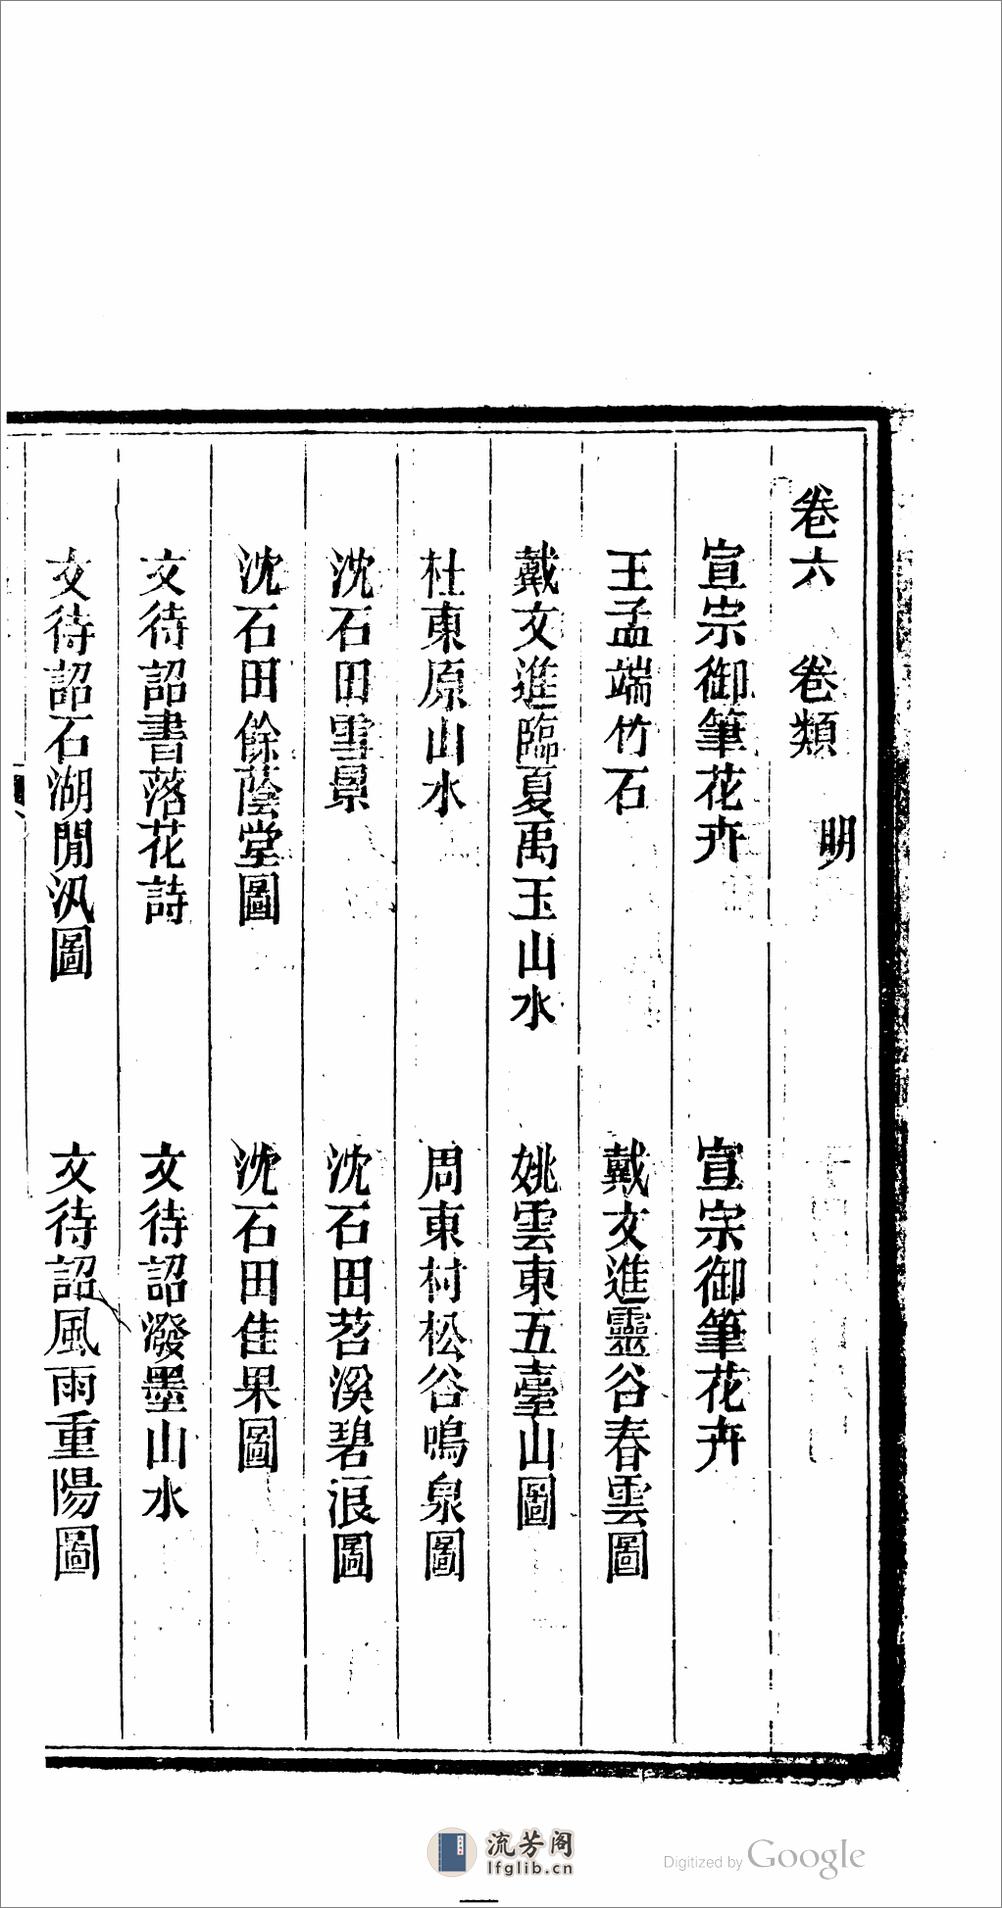 卷六　卷類　明
宣宗御筆花卉　宣宗御筆花卉
王孟端竹石　戴文進靈谷春雲圖
戴文進臨夏禹玉山水　姚雲東五臺山圖
杜東原山水　周東村松谷鳴泉圖
沈石田雪景　沈石田苕溪碧浪圖
沈石田餘蔭堂圖　沈石田佳果圖
文待詔書落花詩　文待詔潑墨山水
文待詔石湖閒汎圖　文待詔風雨重陽圖
流芳阁
lfglib.cn
Digitized by Google